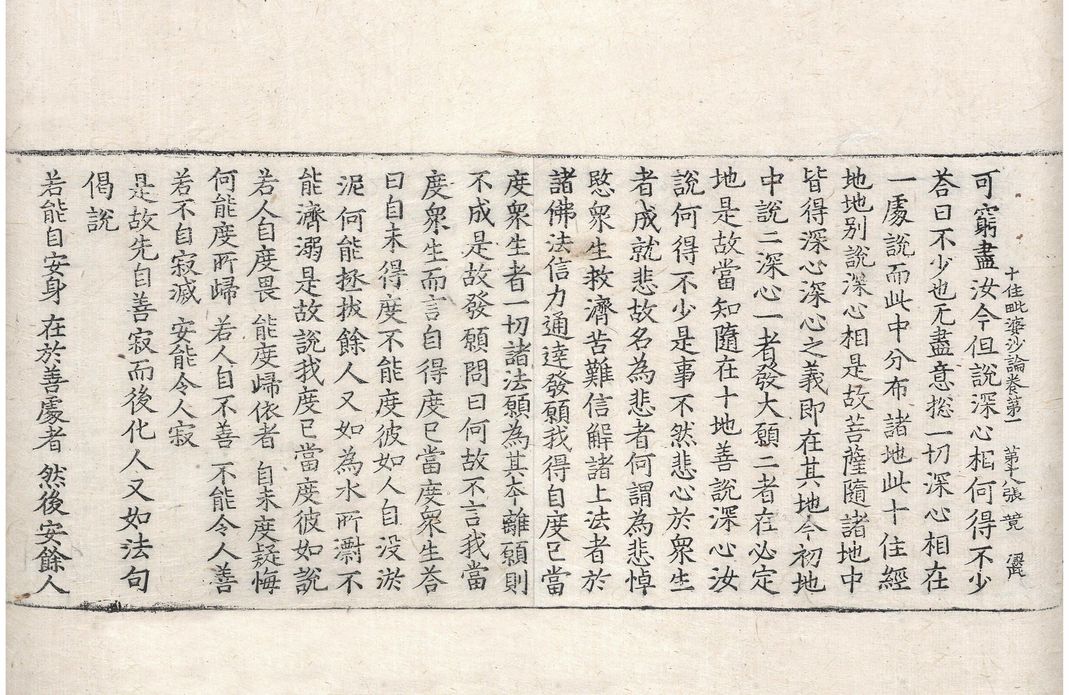 十住毗婆沙論卷第一 第十八張
可窮盡汝今但說深心相何得不少
荅曰不少也无盡意揔一切深心相在
一處說而此中分布諸地此十住經
地地別說深心相是故菩薩隨諸地中
皆得深心深心之義即在其地今初地
中說二深心一者發大願二者在必定
地是故當知隨在十地善說深心汝
說何得不少是事不然悲心於衆生
者成就悲故名為悲者何謂為悲悼
愍衆生救濟苦難信解諸上法者於
諸佛法信力通達發願我得自度已當
度衆生者一切諸法願為其本離願則
不成是故發願問曰何故不言我當
度衆生而言自得度已當度衆生荅
曰自未得度不能度彼如人自没淤
泥何能拯拔餘人又如為水所𣿖不
能濟溺是故說我度已當度彼如說
若人自度畏 能度歸依者 自未度疑悔
何能度所歸 若人自不善 不能令人善
若不自寂滅 安能令人寂
是故先自善寂而後化人又如法句
偈說
若能自安身 在於善處者 然後安餘人